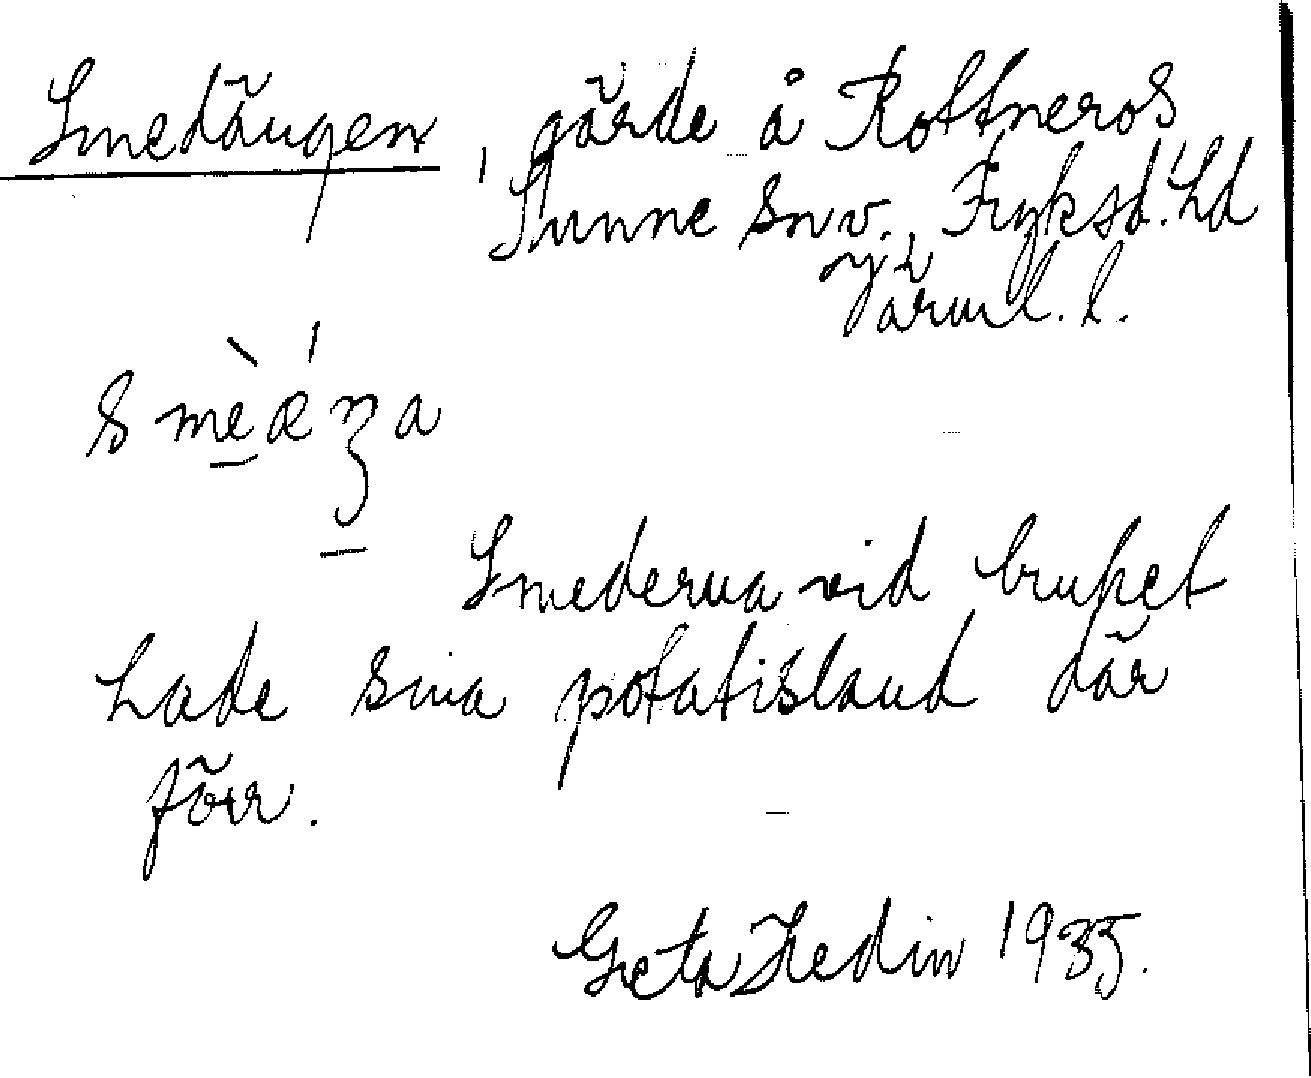 Smedängen, gärde å Rottneros
Sunne sn v. Fryksd. hd
Värml. l.
Smederna vid bruket
hade sina potatisland där
förr.
Greta Hedin 1933.